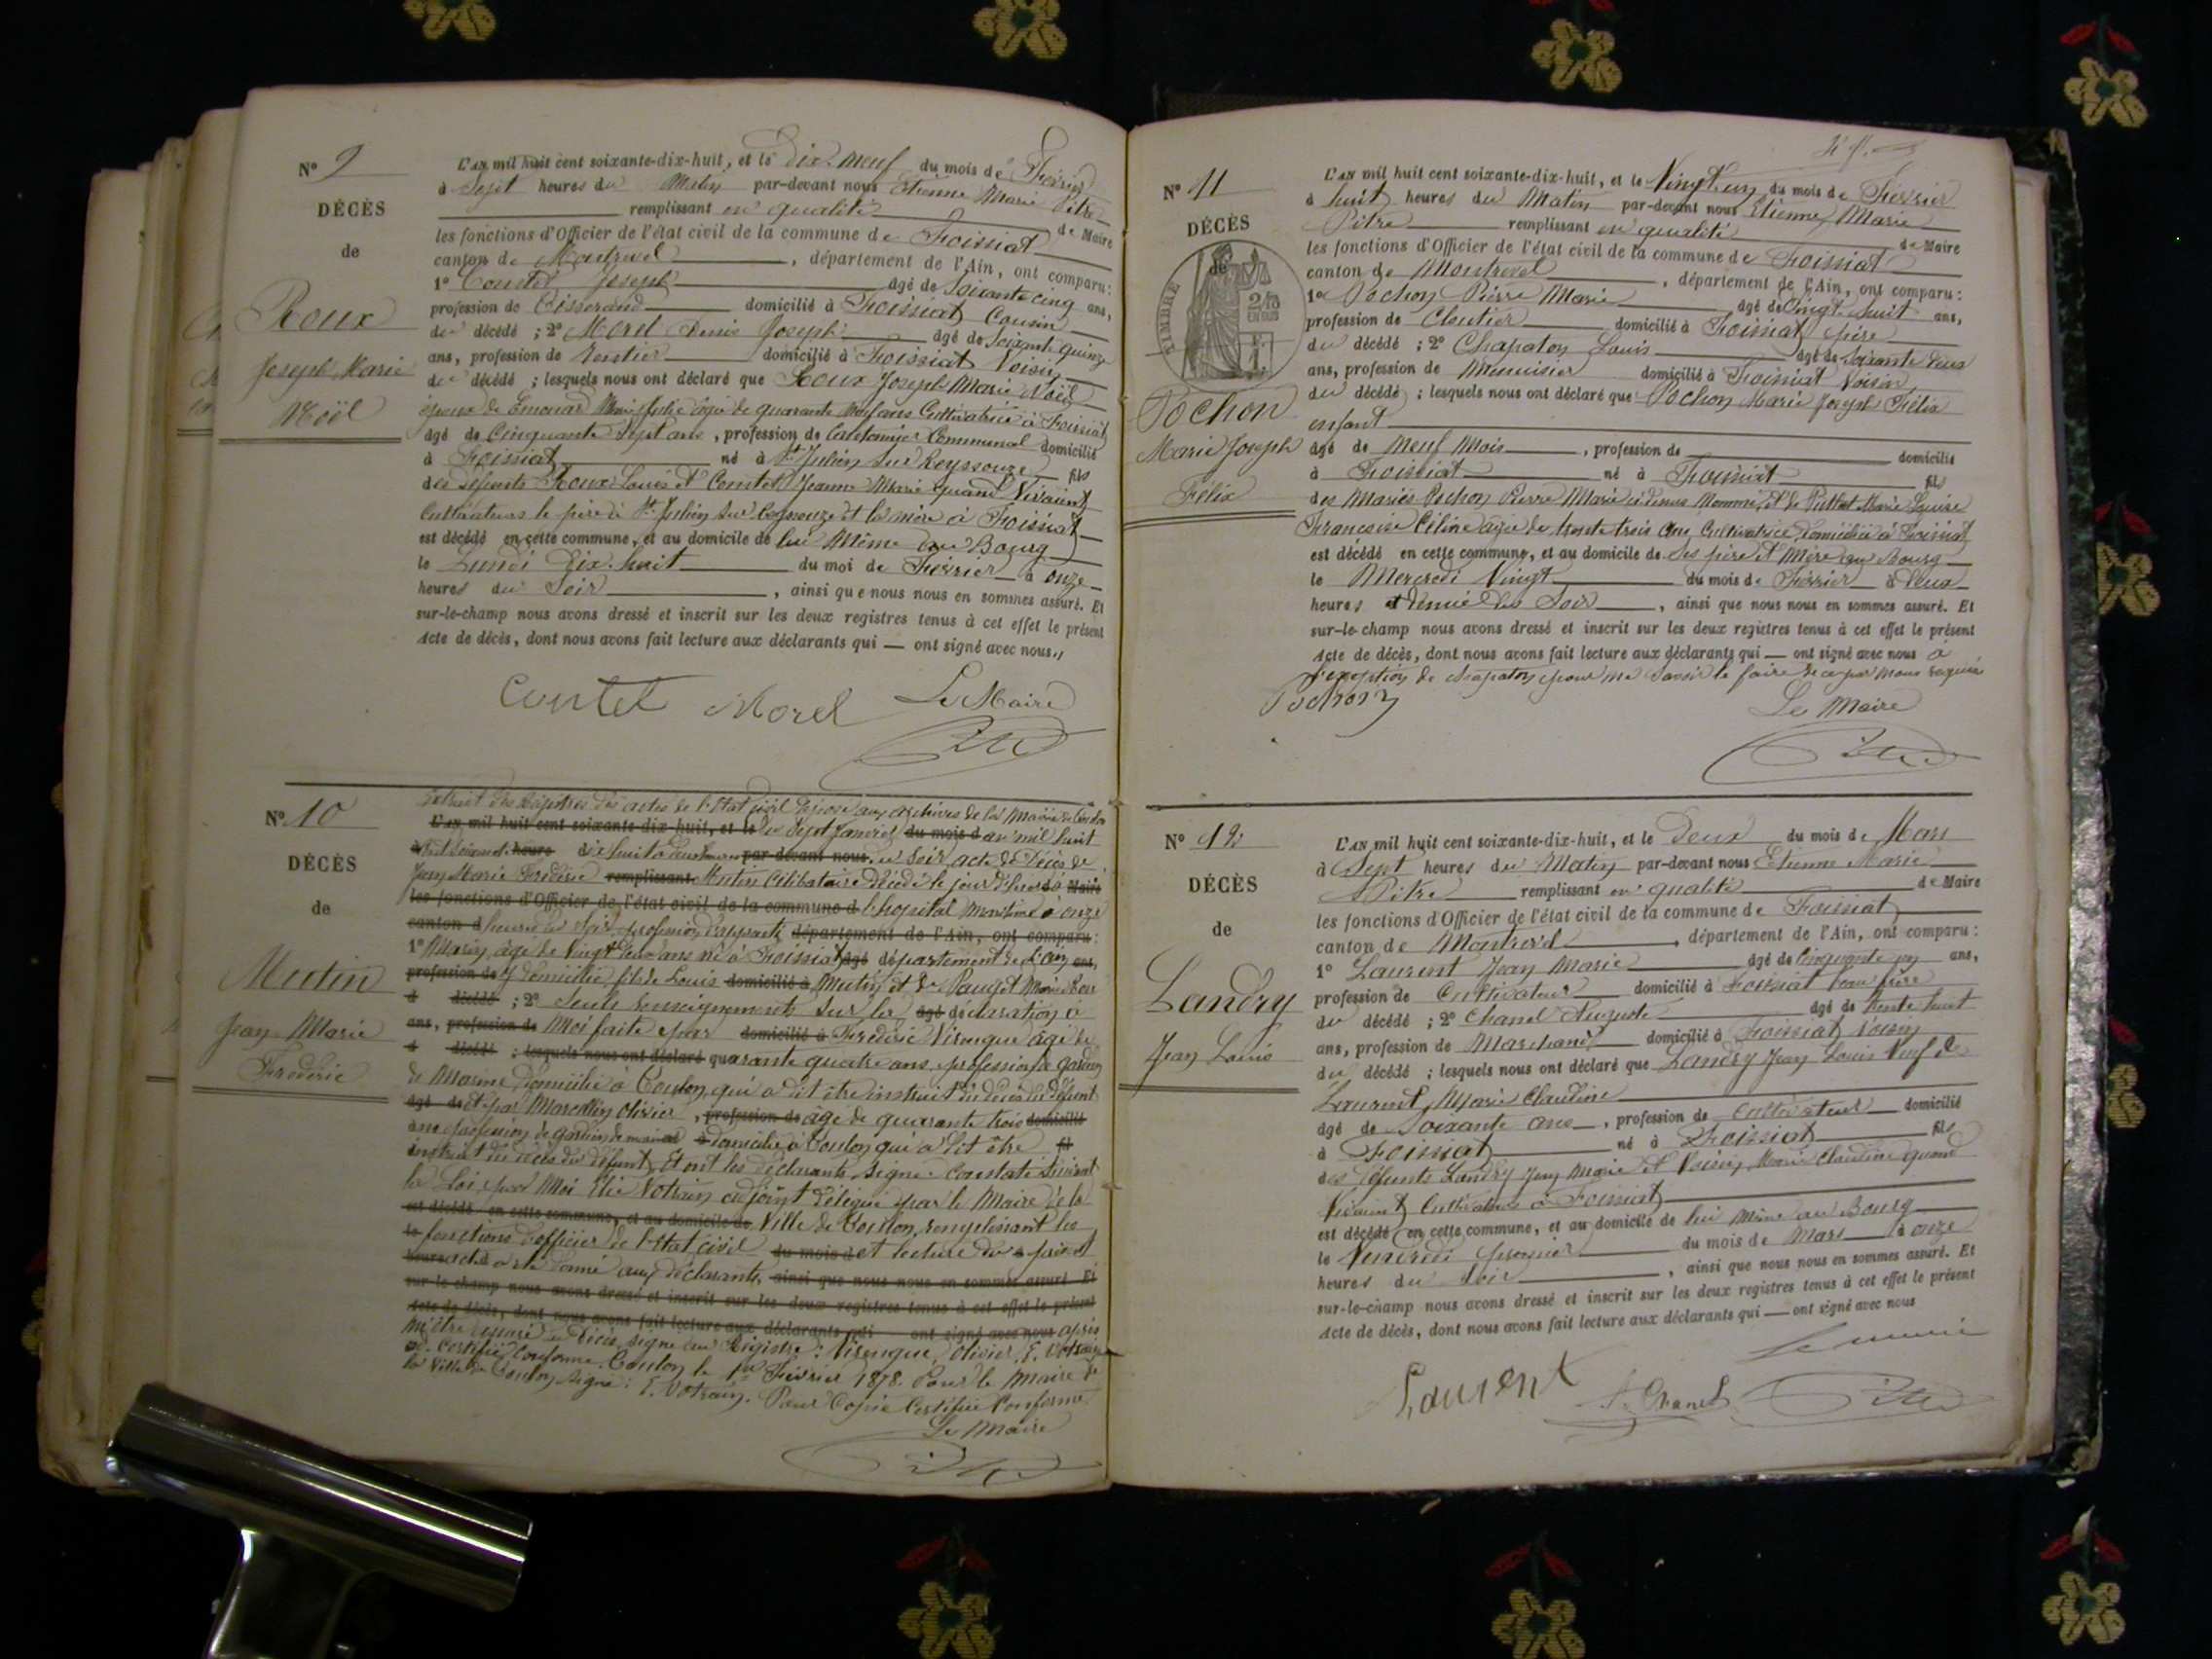 N° 9
DÉCÈS
de
Roux
Joseph Marie
Noël
L'AN mil huit cent soixante-dix-huit, et le Dix-Neuf du mois de Février
à Sept heures du Matin par-devant nous Etienne Marie Pitre
remplissant en qualité de Maire
les fonctions d'Officier de l'état civil de la commune de Foissiat
canton de Montrevel, département de l'Ain, ont comparu:
1° Contet Joseph âgé de Soixante cinq ans,
profession de Tisserand domicilié à Foissiat Cousin
du décédé; 2° Morel Denis Joseph âgé de Soixante quinze
ans, profession de Rentier domicilié à Foissiat Voisin
du décédé; lesquels nous ont déclaré que Roux Joseph Marie Noël
époux de Emouar Marie Julie âgée de quarante Neuf ans Cultivatrice à Foissiat
âgé de Cinquante Sept ans, profession de Cantonnier Communal domicilié
à Foissiat né à St Julien Sur Reyssouze fils
des défunts Roux Louis et Contet Jeanne Marie quand Vivaient
Cultivateurs le père à St Julien Sur Reyssouze et la mère à Foissiat
est décédé en cette commune, et au domicile de lui Même au Bourg
le Lundi Dix-huit du moi de Février à onze
heures du Soir, ainsi que nous nous en sommes assuré. Et
sur-le-champ nous avons dressé et inscrit sur les deux registres tenus à cet effet le présent
Acte de décès, dont nous avons fait lecture aux déclarants qui — ont signé avec nous.
Contet Morel Le Maire
Pitre
N° 10
DÉCÈS
de
Mutin
Jean Marie
Frédéric
Extrait des Registres des actes de l'Etat civil déposé aux archives de la Mairie de Toulon
L'AN mil huit cent soixante-dix-huit, et le Du Sept Janvier du mois d an mil huit
cent soixante heure dix huit à heures par-devant nous du Soir acte de Décès de
Jean Marie Frédéric remplissant Mutin Célibataire décédé le jour d'hier à Maire
les fonctions d'Officier de l'état civil de la commune d l'hopital Maritime à onze
canton d heures du Soir profession d'apprenti département de l'Ain, ont comparu:
1° Marin, âgé de Vingt deux ans né à Foissiat âgé département de l'ain ans,
profession de y domicilié, fils de Louis domicilié à Mutin et de Pauget Marie
d décédé; 2° Seuls renseignements Sur la âgé déclaration à
ans, profession de Moi faite par domicilié à Frédéric Virengue âgé de
d décédé; lesquels nous ont déclaré quarante quatre ans, profession de gardien
de Marine domicilié à Toulon, qui a dit être instruit du décès du défunt
âgé de et par Marcellin Olivier, profession de âgé de quarante trois domicilié
ans profession de gardien de marine à domicilié à Toulon qui a dit être fil
instruit du décès du défunt, Et ont les déclarants, Signé. Constaté Suivant
la Loi, par Moi Elie Votrain adjoint délégué par le Maire de la
est décédé en cette commune, et au domicile de Ville de Toulon, remplissant les
le fonctions d'officier de l'Etat civil du mois d et lecture du présent
heures acte a été donné aux déclarants, ainsi que nous nous en sommes assuré. Et
sur-le-champ nous avons dressé et inscrit sur les deux registres tenus à cet effet le présent
Acte de décès, dont nous avons fait lecture aux déclarants qui ont signé avec nous après
m'être assuré du Décès, Signé au Registre: Virengue, Olivier, E. Votrain
Certifié Conforme. Toulon le 1er Février 1878. Pour le Maire de
la Ville de Toulon, Signé: E. Votrain. Pour Copie Certifiée Conforme
Le Maire
Pitre
N° 11
DÉCÈS
de
TIMBRE
Pochon
Marie Joseph
Félix
L'AN mil huit cent soixante-dix-huit, et le Vingt un du mois de Février
à huit heures du Matin par-devant nous Etienne Marie
Pitre remplissant en qualité de Maire
les fonctions d'Officier de l'état civil de la commune de Foissiat
canton de Montrevel, département de l'Ain, ont comparu:
1° Pochon Pierre Marie âgé de Vingt huit ans,
profession de Cloutier domicilié à Foissiat père
du décédé; 2° Chapaton Louis âgé de Soixante deux
ans, profession de Menuisier domicilié à Foissiat Voisin
du décédé; lesquels nous ont déclaré que Pochon Marie Joseph Félix
enfant
âgé de Neuf Mois, profession de domicilié
à Foissiat né à Foissiat fils
des Mariés Pochon Pierre Marie ci-dessus Nommé, et de Marie Louise
Françoise Céline âgée de trente trois ans Cultivatrice domiciliée à Foissiat
est décédé en cette commune, et au domicile de Ses père et Mère au Bourg
le Mercredi Vingt du mois de Février à Deux
heures et Demie du Soir, ainsi que nous nous en sommes assuré. Et
sur-le-champ nous avons dressé et inscrit sur les deux registres tenus à cet effet le présent
Acte de décès, dont nous avons fait lecture aux déclarants qui — ont signé avec nous à
l'exception de Chapaton pour ne Savoir le faire de ce par nous requis
Pochon Le Maire
Pitre
N° 12
DÉCÈS
de
Landry
Jean Louis
L'AN mil huit cent soixante-dix-huit, et le Deux du mois de Mars
à Sept heures du Matin par-devant nous Etienne Marie
Pitre remplissant en qualité de Maire
les fonctions d'Officier de l'état civil de la commune de Foissiat
canton de Montrevel, département de l'Ain, ont comparu:
1° Laurent Jean Marie âgé de Cinquante un ans,
profession de Cultivateur domicilié à Foissiat beau frère
du décédé; 2° Chanel Auguste âgé de trente huit
ans, profession de Marchand domicilié à Foissiat Voisin
du décédé; lesquels nous ont déclaré que Landry Jean Louis Veuf de
Laurent Marie Claudine
âgé de Soixante ans, profession de Cultivateur domicilié
à Foissiat né à Foissiat fils
des défunts Landry Jean Marie et Voisin Marie Claudine quand
Vivaient Cultivateurs à Foissiat
est décédé en cette commune, et au domicile de lui Même au Bourg
le Vendredi premier du mois de Mars à onze
heures du Soir, ainsi que nous nous en sommes assuré. Et
sur-le-champ nous avons dressé et inscrit sur les deux registres tenus à cet effet le présent
Acte de décès, dont nous avons fait lecture aux déclarants qui — ont signé avec nous
Le Maire
Laurent A. Chanel Pitre